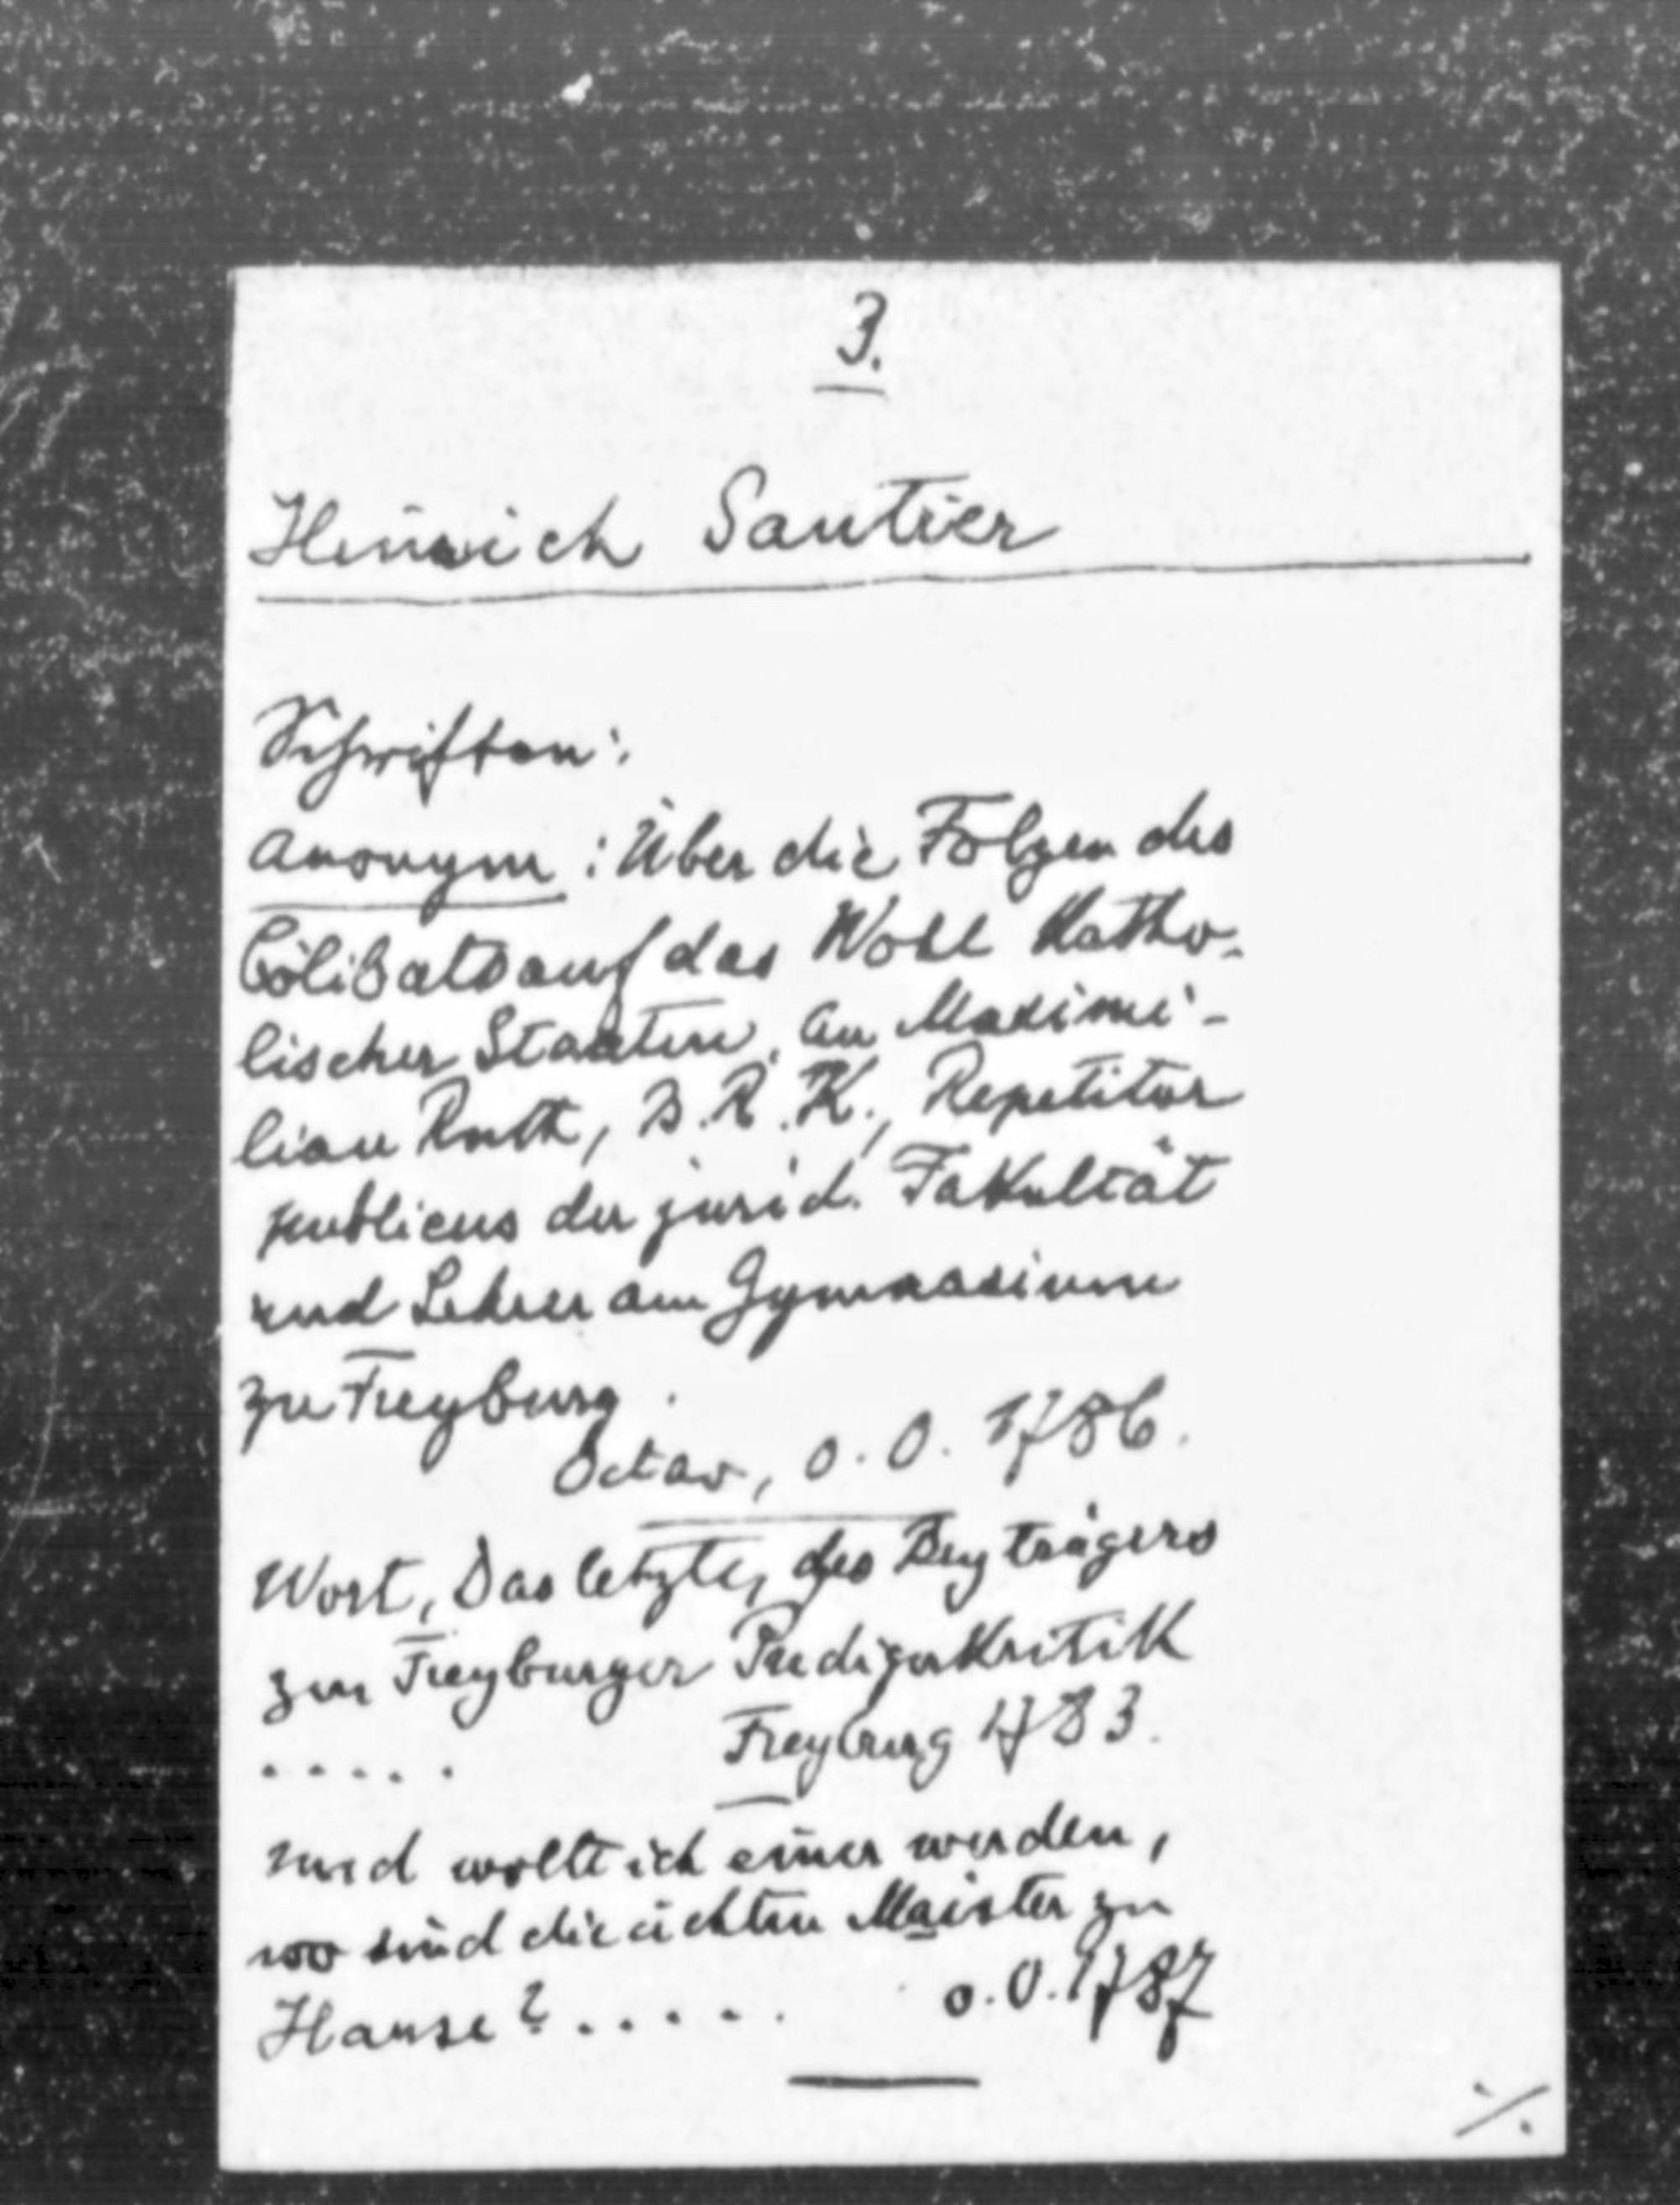 3.
Heinrich Sautier
Schriften:
Anonym: Über die Folgen des
Cölibats auf das Wohl Katho-
lischer Staaten, an Maximi-
lian Ruth, B.R.K., Repetitor
publicus der jurid. Fakultät
und Lehrer am Gymnasium
zu Freyburg.
Octav, o.O. 1786.
Wort, Das letzte, des Beyträgers
zur Freyburger Predigerkritik
..... Freyburg 1783.
Und wollt ich einer werden,
wo sind die ächten Maister zu
Hause?..... o.O. 1787
./.